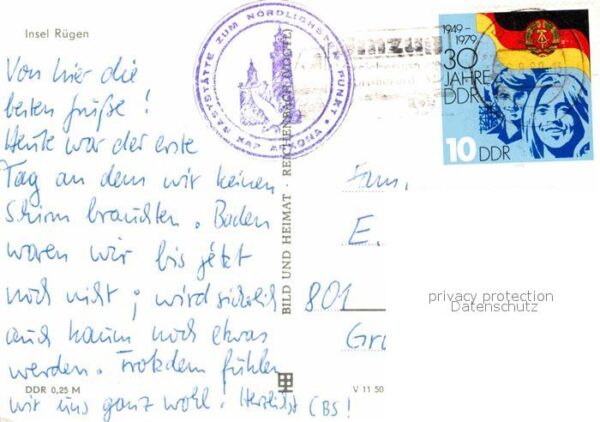 Insel Rügen
Von hier die
besten Grüße!
Heute war der erste
Tag an dem wir keinen
Schirm brauchten. Baden
waren wir bis jetzt
noch nicht; wird sicherlich
auch kaum noch etwas
werden. Trotzdem fühlen
wir uns ganz wohl! Herzlichst CBS!
DDR 0,25 M
RASTSTÄTTE ZUM NÖRDLICHSTEN PUNKT
KAP ARKONA
BILD UND HEIMAT · REICHENBACH (VOGTL)
V 11 50
1949-
1979
30
JAHRE
DDR
10 DDR
Fam.
E.
801
privacy protection
Datenschutz